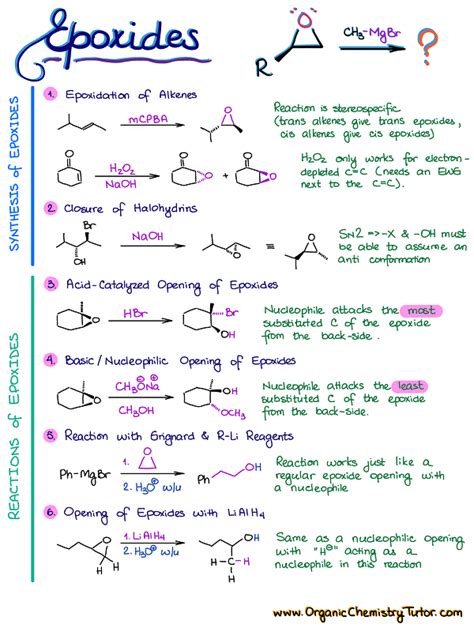 Epoxides
O
R
CH₃-MgBr
?
SYNTHESIS of EPOXIDES
1. Epoxidation of Alkenes
mCPBA
O
Reaction is stereospecific
(trans alkenes give trans epoxides,
cis alkenes give cis epoxides)
O
H₂O₂
NaOH
O
O
+
O
O
H₂O₂ only works for electron-
depleted C=C (needs an EWG
next to the C=C).
2. Closure of Halohydrins
Br
OH
NaOH
O
≡
O
SN2 => -X & -OH must
be able to assume an
anti conformation
REACTIONS of EPOXIDES
3. Acid-Catalyzed Opening of Epoxides
O
HBr
Br
OH
Nucleophile attacks the most
substituted C of the epoxide
from the back-side.
4. Basic/Nucleophilic Opening of Epoxides
O
CH₃O⊖Na⊕
CH₃OH
OH
OCH₃
Nucleophile attacks the least
substituted C of the epoxide
from the back-side.
5. Reaction with Grignard & R-Li Reagents
Ph-MgBr
1. O
2. H₃O⊕ w/u
Ph
OH
Reaction works just like a
regular epoxide opening with
a nucleophile
6. Opening of Epoxides with LiAlH₄
O
1. LiAlH₄
2. H₃O⊕ w/u
OH
H-C-H
H
Same as a nucleophilic opening
with "H⊖" acting as a
nucleophile in this reaction
www.OrganicChemistryTutor.com